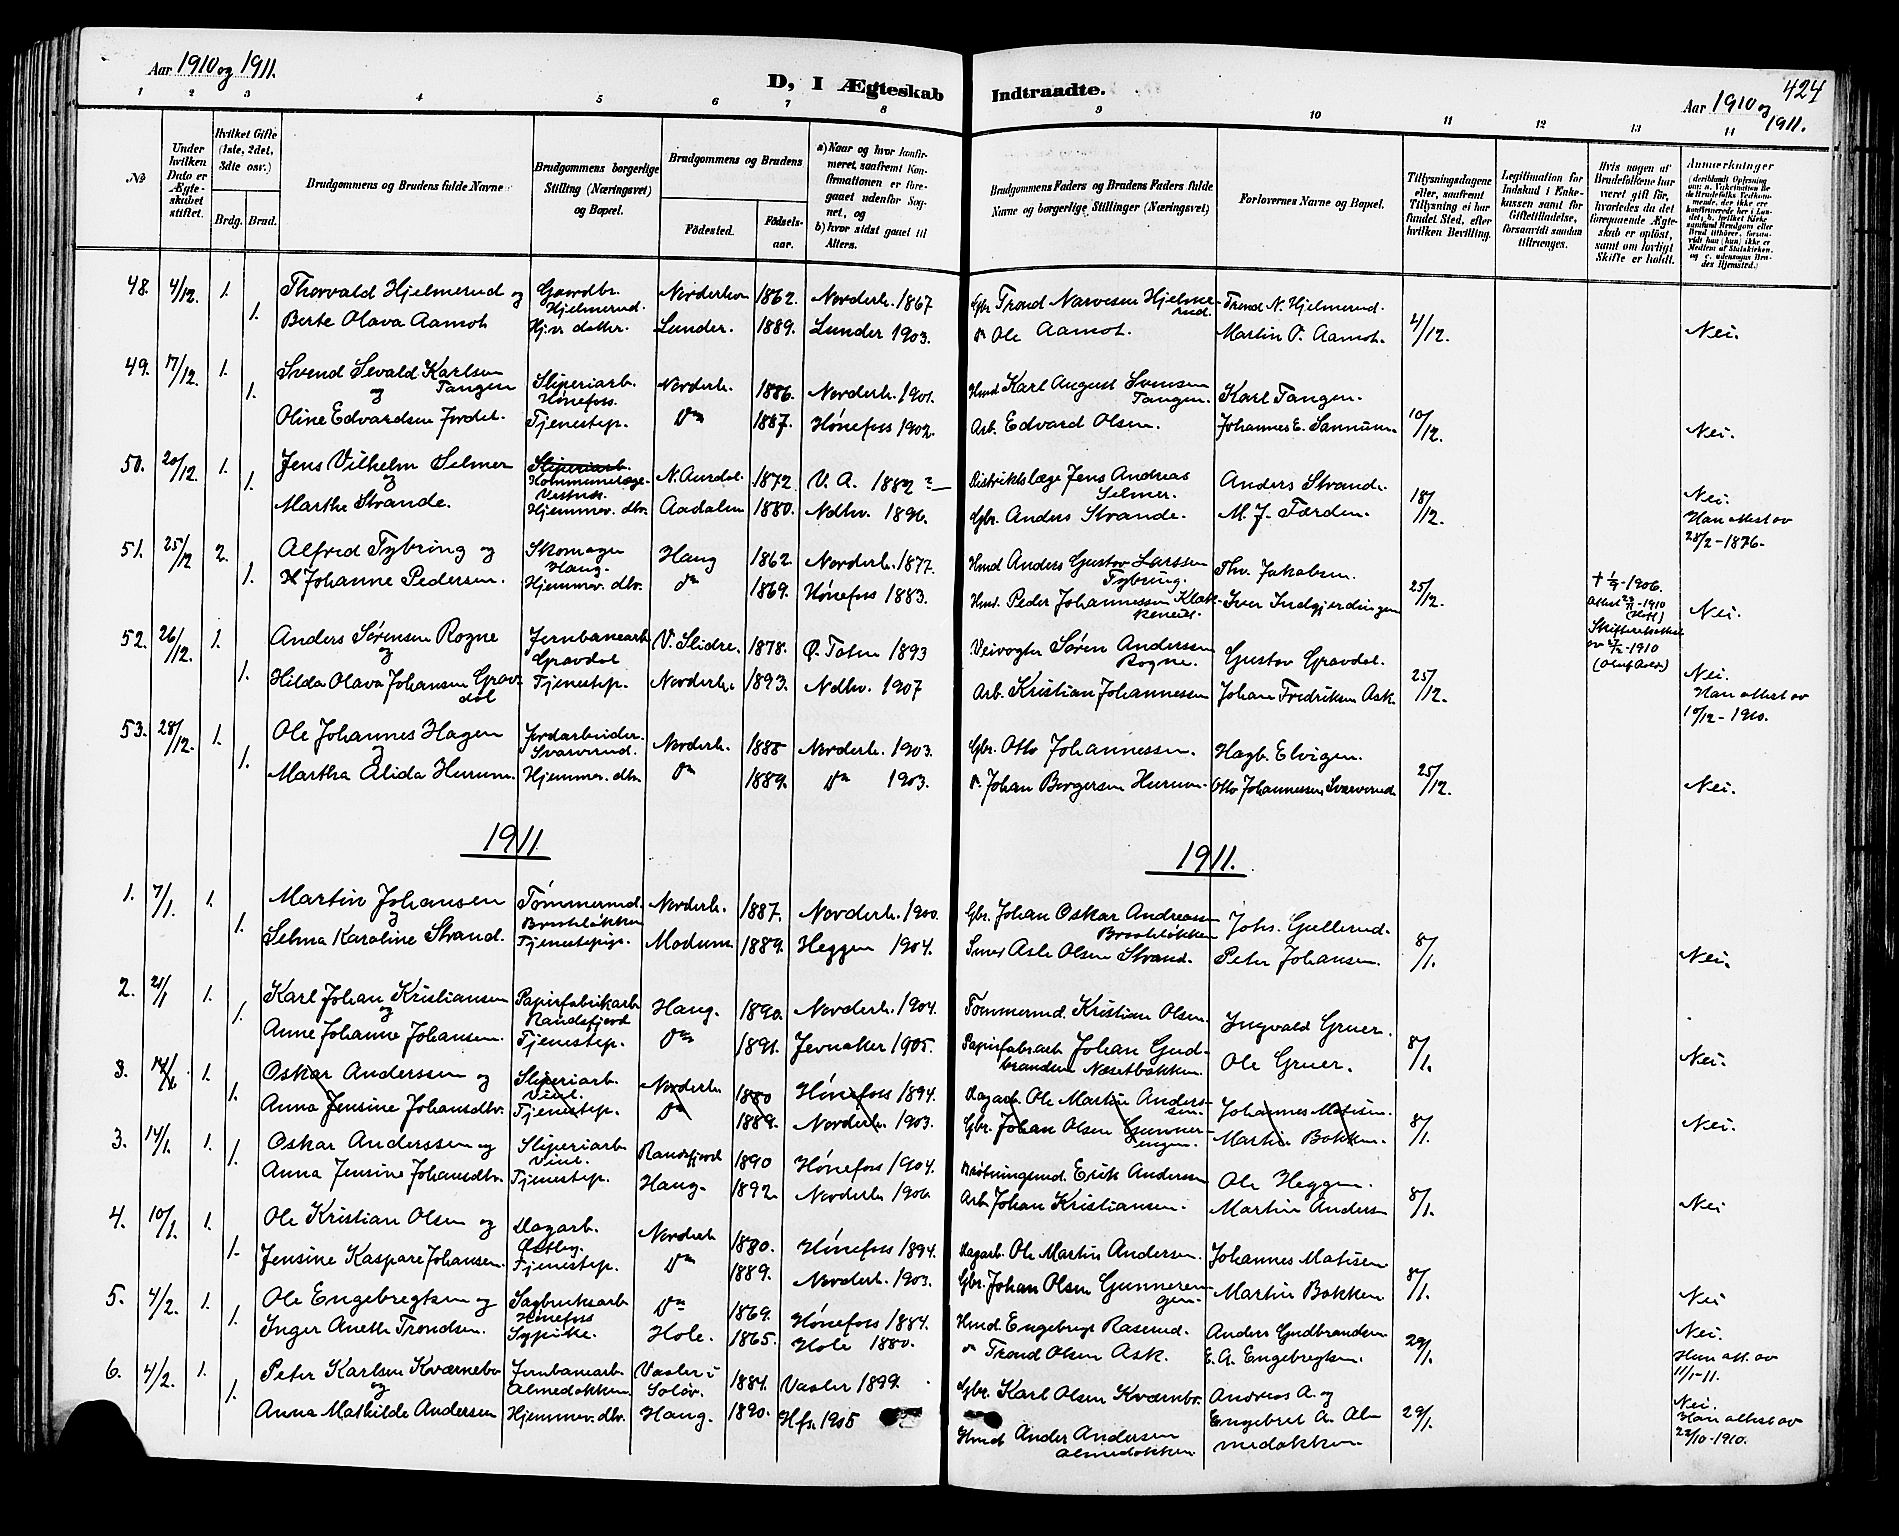 Aar 1910 og 1911.
D, I Ægteskab Indtraadte.
424
Aar 1910 og 1911.
1 2 3 4 5 6 7 8 9 10 11 12 13 14
No
Under hvilken Dato er Ægteskabet stiftet.
Hvilket Gifte (1ste, 2det, 3die osv.)
Brdg. Brud.
Brudgommens og Brudens fulde Navne
Brudgommens borgerlige Stilling (Næringsvei) og Bopæl.
Brudgommens og Brudens
Fødested.
Fødselsaar.
a) Naar og hvor konfirmeret, saafremt Konfirmationen er foregaaet udenfor Sognet, og
b) hvor sidst gaaet til Alters.
Brudgommens Faders og Brudens Faders fulde Navne og borgerlige Stillinger (Næringsvei)
Forlovernes Navne og Bopæl.
Tillysningsdagene eller, saafremt Tillysning ei har fundet Sted, efter hvilken Bevilling.
Legitimation for Indskud i Enkekassen samt for Giftetilladelse, forsaavidt saadan tiltrænges.
Hvis nogen af Brudefolkene har været gift før, hvorledes da det foregaaende Ægteskab er opløst, samt om lovligt Skifte er holdt.
Anmærkninger
48. 4/12. 1. Thorvald Hjelmerud og Gaardbr. Hjelmerud. Norderhov 1862. Norderh. 1867 Gbr. Trond Narvesen Hjelmerud Trond N. Hjelmerud.
1. Berte Olava Aamot Hj.v. datter. Lunder. 1889. Lunder 1903. Ole Aamot. Martin O. Aamot. 4/12. Nei.
49. 17/12. 1. Svend Sevald Karlsen Tangen og Sliperiarb. Hønefoss. Norderh. 1886. Norderh. 1901. Hmd. Karl August Svensen Tangen. Karl Tangen.
1. Oline Edvardsen Jordet. Tjenestep. Do 1887. Hønefoss 1902. Arb. Edvard Olsen. Johannes E. Sannum. 10/12. Nei.
50. 20/12. 1. Jens Vilhelm Selmer og Sliperiarb. N. Aurdal. 1872. V. A. 1882 ? Distriktslæge Jens Andreas Selmer. Anders Strande.
1. Marthe Strande. Hjemmev. dtr. Aadalen 1880. Ndhv. 1896. Gbr. Anders Strande. M. J. Færden. 18/12. Nei. Han attest av 28/2-1876.
51. 25/12 2. Alfred Tybring og Skomager Haug. Haug 1862. Norderh. 1877. Hmd. Anders Gustav Larssen Tybring. Thv. Jakobsen.
1. Johanne Pedersen. Hjemmev. dtr. Do 1869. Hønefoss 1883. Hmd. Peder Johannessen Iver Indgjerdingen 25/12. Nei.
52. 26/12. 1. Anders Sørensen Rogne og Jernbanearb. Gravdal V. Slidre. 1878. Ø. Toten 1893 Veivogter Søren Andersen Rogne. Gustav Gravdal.
1. Hilda Olava Johansen Gravdal Tjenestep. Norderh. 1893. Ndhv. 1907 Arb. Kristian Johannessen Johan Fredriksen Ask. 25/12. Nei. Han attest av 10/12-1910.
53. 28/12. 1. Ole Johannes Hagen og Jordarbeider Svarverud. Norderh. 1888 Norderh. 1903. Gbr. Otto Johannessen. Hagb. Elvigen.
1. Martha Alida Hurum. Hjemmev. dtr. Do 1889. Do 1903. Johan Borgersen Hurum. Otto Johannessen Svarverud. 25/12. Nei.
1911 1911.
1. 7/1. 1. Martin Johansen og Tømmermd. Norderh. 1887. Norderh. 1900. Gbr. Johan Oskar Andreassen Johs. Gullerud.
1. Selma Karoline Strand. Tjenestepige. Modum 1889. Heggen 1904. Smed Asle Olsen Strand. Peter Johansen. 8/1. Nei.
2. 21/1 1. Karl Johan Kristiansen og Papirfabrikarb. Randsfjord Haug. 1890. Norderh. 1904. Tømmermd. Kristian Olsen. Ingvald Gruer.
1. Anne Johanne Johansen. Tjenestep. Do 1891. Jevnaker 1905. Papirfabarb. Johan Gudbrandsen Næsetbakken. Ole Gruer. 8/1. Nei.
3. 14/1 1. Oskar Anderssen og Sliperiarb. Viul. Norderh. 1880 Hønefoss 1894. Dagarb. Ole Martin Anderssen. Johannes Matisen.
1. Anna Jensine Johansdtr. Tjenestep. Do 1889. Norderh. 1903. Gbr. Johan Olsen Gunnerengen. Martin Bakken. 8/1. Nei.
3. 14/1. 1. Oskar Anderssen og Sliperiarb. Viul. Randsfjord 1890 Hønefoss 1904. Erik Anderssen Ole Heggen.
1. Anna Jensine Johansdtr. Tjenestep. Haug. 1892. Norderh. 1906. Arb. Johan Kristiansen. Martin Anders 8/1. Nei
4. 10/1. 1. Ole Kristian Olsen og Dagarb. Østbg. Norderh. 1880. Hønefoss 1894. Dagarb. Ole Martin Andersen. Johannes Matisen
1. Jensine Kaspare Johansen. Tjenestep. Do 1889. Norderh. 1903. Gbr. Johan Olsen Gunnerengen. Martin Bakken 8/1. Nei
5. 4/2. 1. Ole Engebregtsen og Sagbruksarb. Hønefoss Do 1869. Hønefoss 1884. Hmd. Engebregt Raserud. Anders Gudbrandsen
1. Inger Anette Trondsen. Sypike. Hole. 1865. Hole 1880. Trond Olsen Ask. E. A. Engebregtsen. 29/1. Nei. Han att. av 11/1-11.
6. 4/2. 1. Peter Karlsen Kværnebo og Jernbanearb. Almedokken Vaaler i Soløv. 1884. Vaaler 1899. Gbr. Karl Olsen Kværnbo. Andreas A. og
1. Anna Mathilde Andersen Hjemmev. dtr. Haug. 1890. Hfs. 1905 Hmd. Ander Andersen Almedokken. Engebret A. Almedokken 29/1. Nei. Han attest av 22/10-1910.